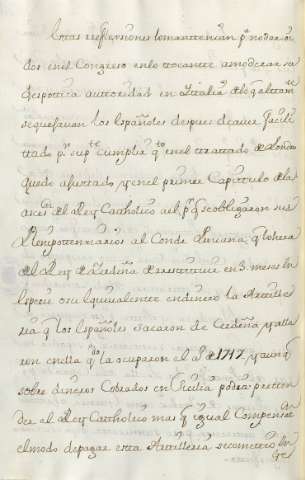 estas reflexiones lo mantenian pª no dar oi
dos en el Congreso en lo tocante a moderar su
despotica autoridad en Italia de lo q altam.te
se quejavan los españoles despues de aver facili
tado pr su pte cumplir qto en el trattado de Londres
quedo ajustado y en el primer Capitulo de la
del Rey Catholico al pr q se obligaron sus
Plenipotenciarios al Conde Provana, q bolviera
el Rey de Cerdeña a restituir en 3. meses in
specie o su equivalente en dinero la Artille
ria q los Españoles sacaron de Cerdeña, y alla
ron en ella qdo la ocuparon el aº de 1717. y aunq
sobre dineros Cobrados en Sicilia podia preten
der el Rey Catholico mas q igual Compensaºn
el modo de pagar esta Artilleria se cometio